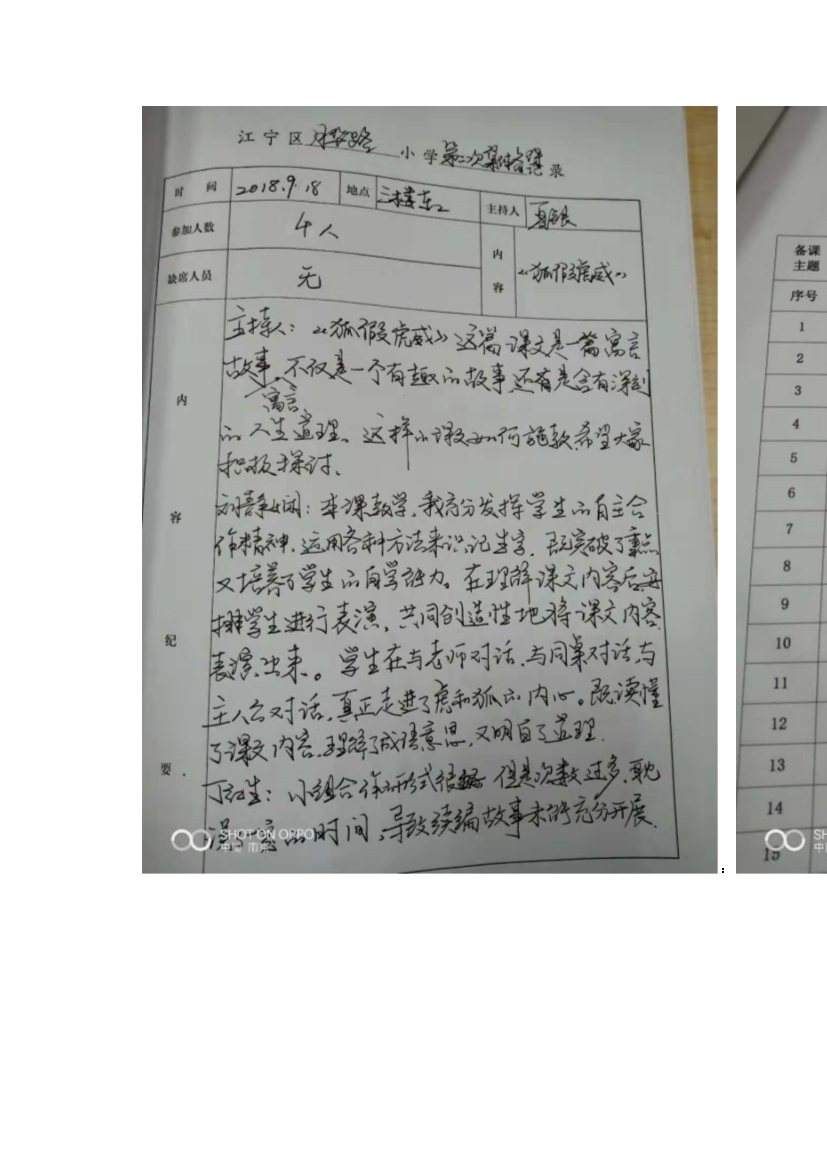 江宁区 小学第二次集体备课记录
时 间 2018.9.18 地点 三楼东 主持人 夏
参加人数 4人
缺席人员 无
内容 《狐假虎威》
内容纪要
主持人:《狐假虎威》这篇课文是一篇寓言
故事,不仅是一个有趣的故事还有是含有深刻
寓言
的人生道理。这样的课文如何施教希望大家
积极探讨。
刘静娴:本课教学,我充分发挥学生的自主合
作精神,运用各种方法来识记生字,既突破了重点
又培养了学生的自学能力。在理解课文内容后安
排学生进行表演,共同创造性地将课文内容
表演出来。学生在与老师对话,与同桌对话,与
主人公对话,真正走进了虎和狐的内心。既读懂
了课文内容,理解了成语意思,又明白了道理.
丁红生:小组合作研形式很好 但是次数过多,耽
的时间,导致续编故事未能充分开展.
SHOT ON OPPO
中国 南京
备课
主题
序号
1
2
3
4
5
6
7
8
9
10
11
12
13
14
15
SH
中国